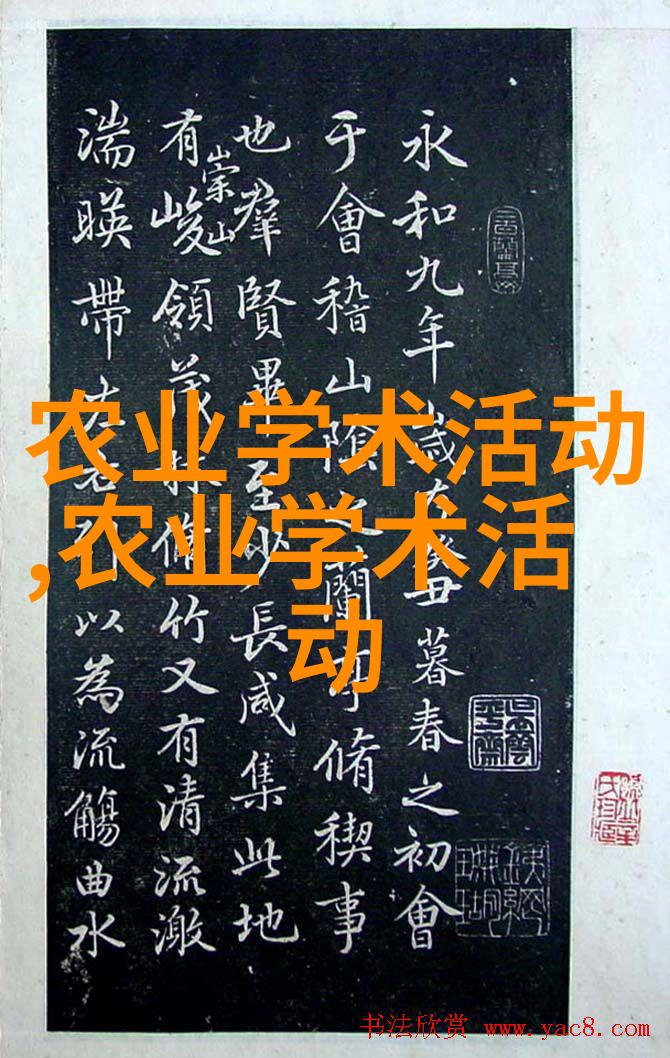 永和九年歲在癸丑暮春之初會
于會稽山陰之蘭亭脩稧事
也羣賢畢至少長咸集此地
有崇山峻領茂林脩竹又有清流激
湍暎帶左右引以為流觴曲水
农业学术活动
,农业学术活
动
书法欣赏 www.yac8.com